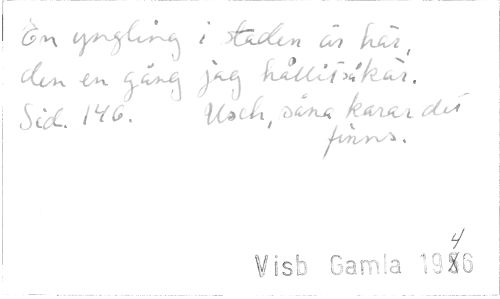 En yngling i staden är här,
den en gång jag hållit så kär.
Sid. 146. Usch, såna karar det
finns.
4
Visb Gamla 1986